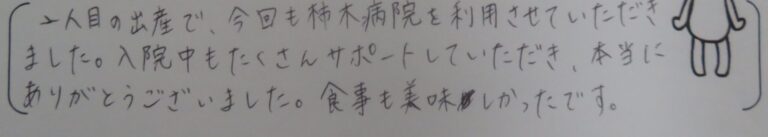 2人目の出産で、今回も柿木病院を利用させていただき
ました。入院中もたくさんサポートしていただき、本当に
ありがとうございました。食事も美味しかったです。